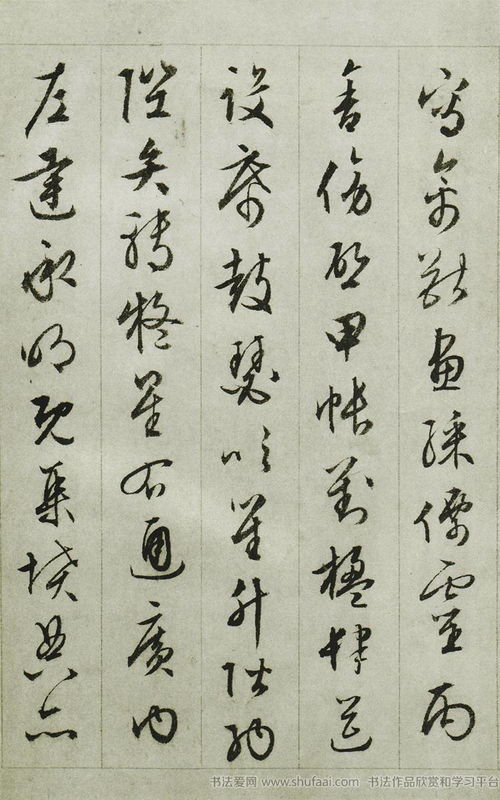 寫禽獸畫綵僊靈丙
舍傍啓甲帳對楹肆筵
設席鼓瑟吹笙升階納
陛弁轉疑星右通廣內
左達承明既集墳典亦
书法爱网 www.shufaai.com 书法作品欣赏和学习平台